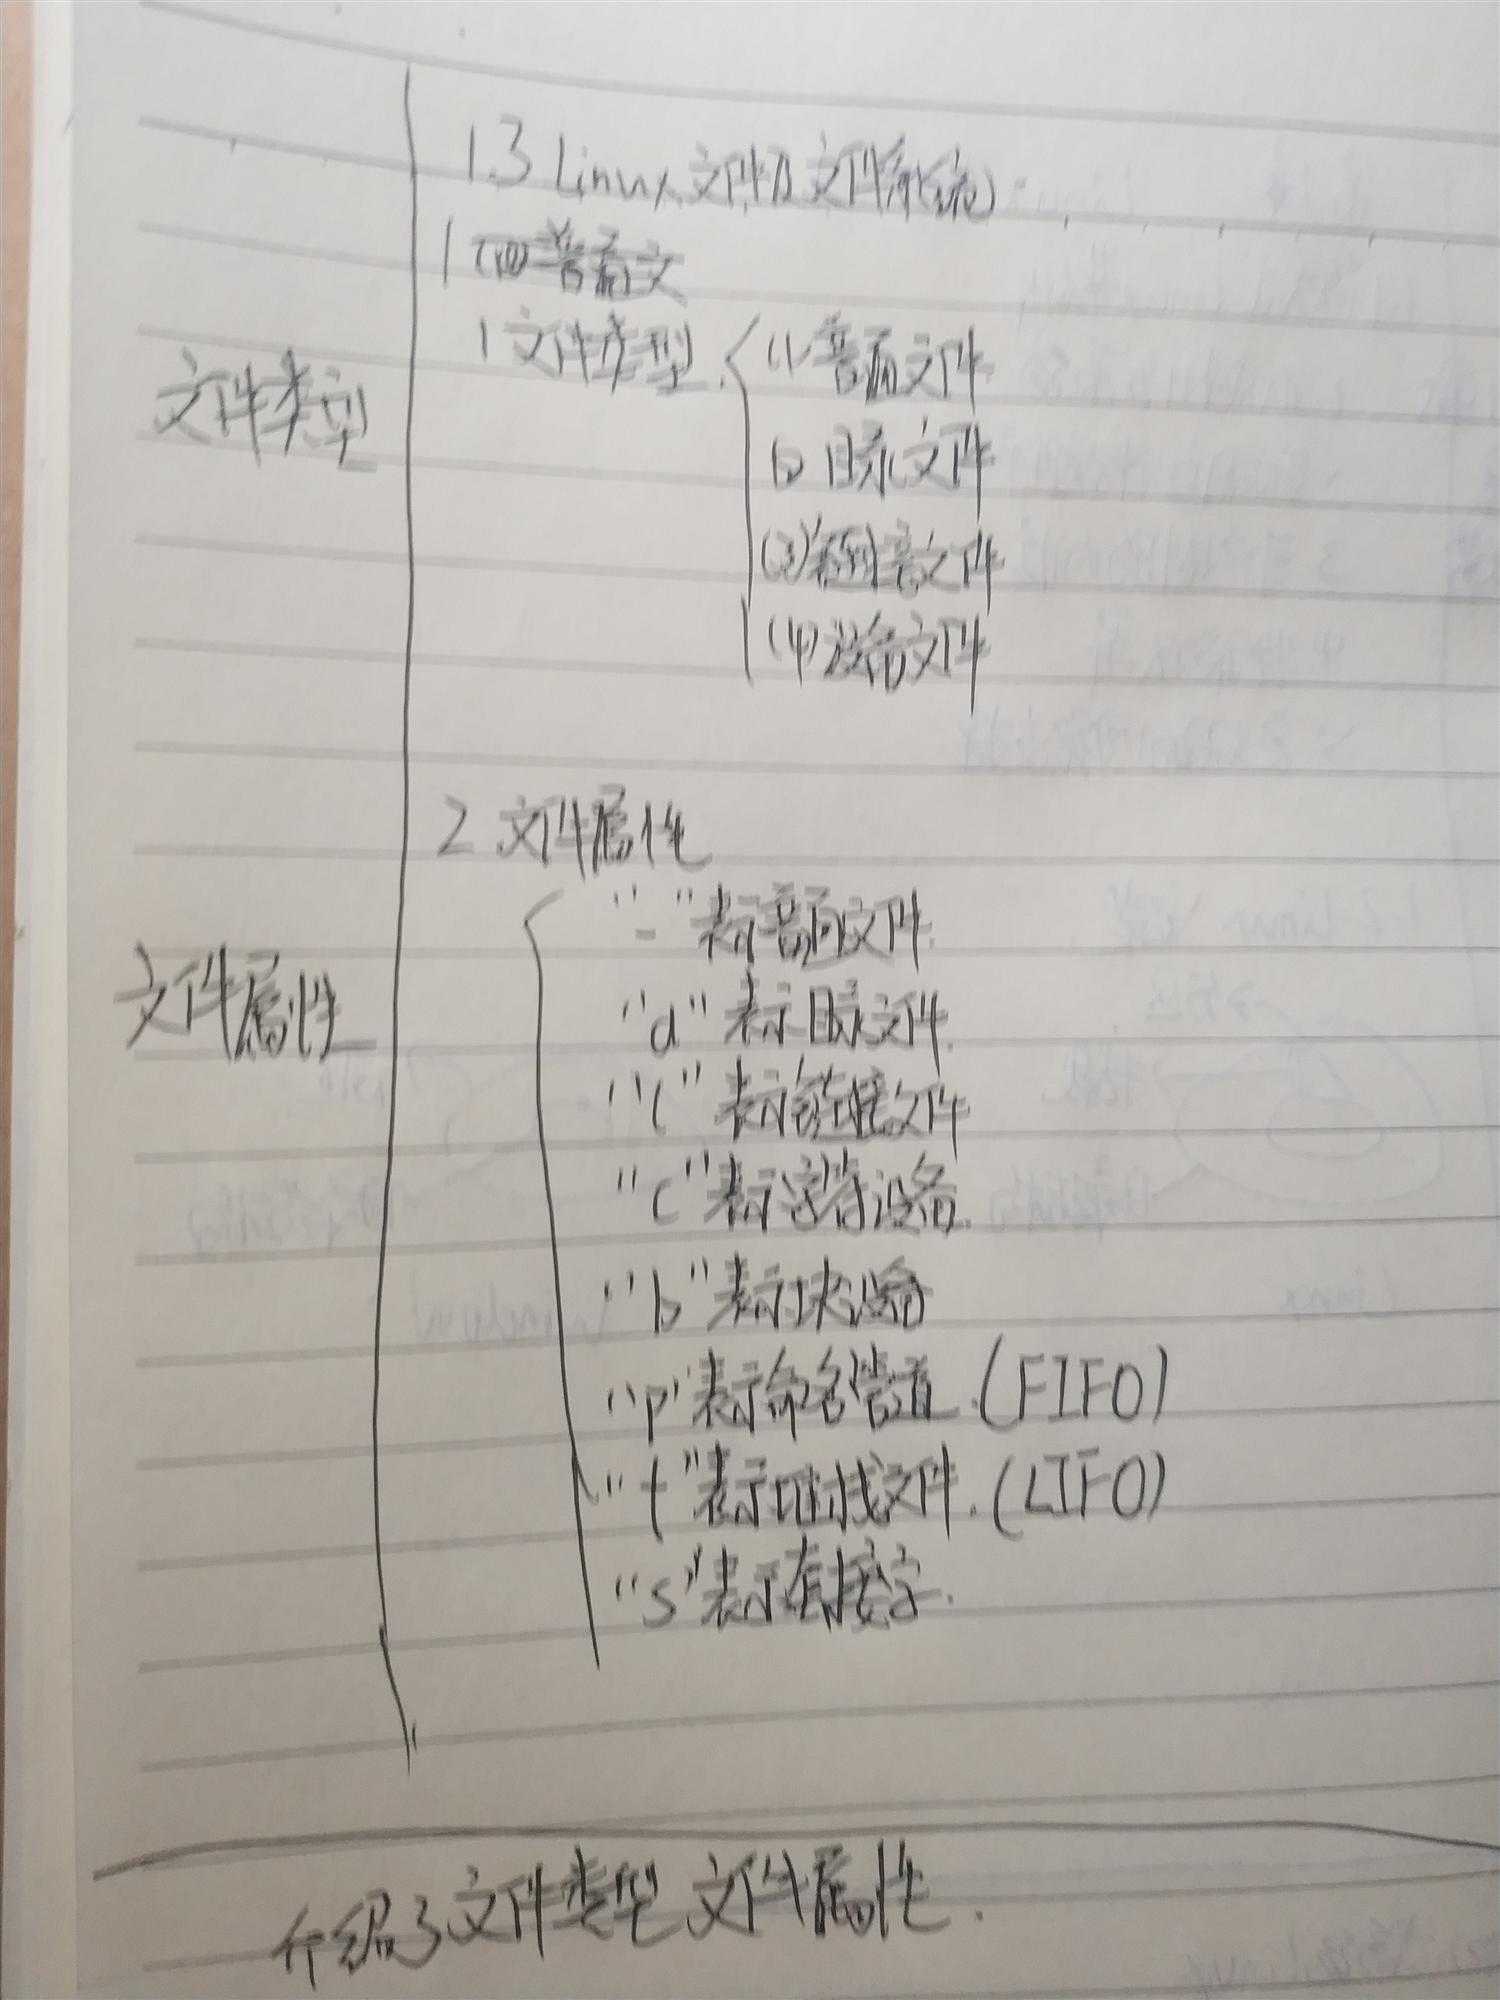 1.3 Linux文件及文件系统
1 普通文
文件类型
1 文件类型
(1) 普通文件
(2) 目录文件
(3) 链接文件
(4) 设备文件
2 文件属性
文件属性
"-"表示普通文件.
"d"表示目录文件.
"l"表示链接文件
"c"表示字符设备.
"b"表示块设备
"p"表示命名管道.(FIFO)
"f"表示堆栈文件.(LIFO)
"s"表示套接字.
介绍了文件类型 文件属性.